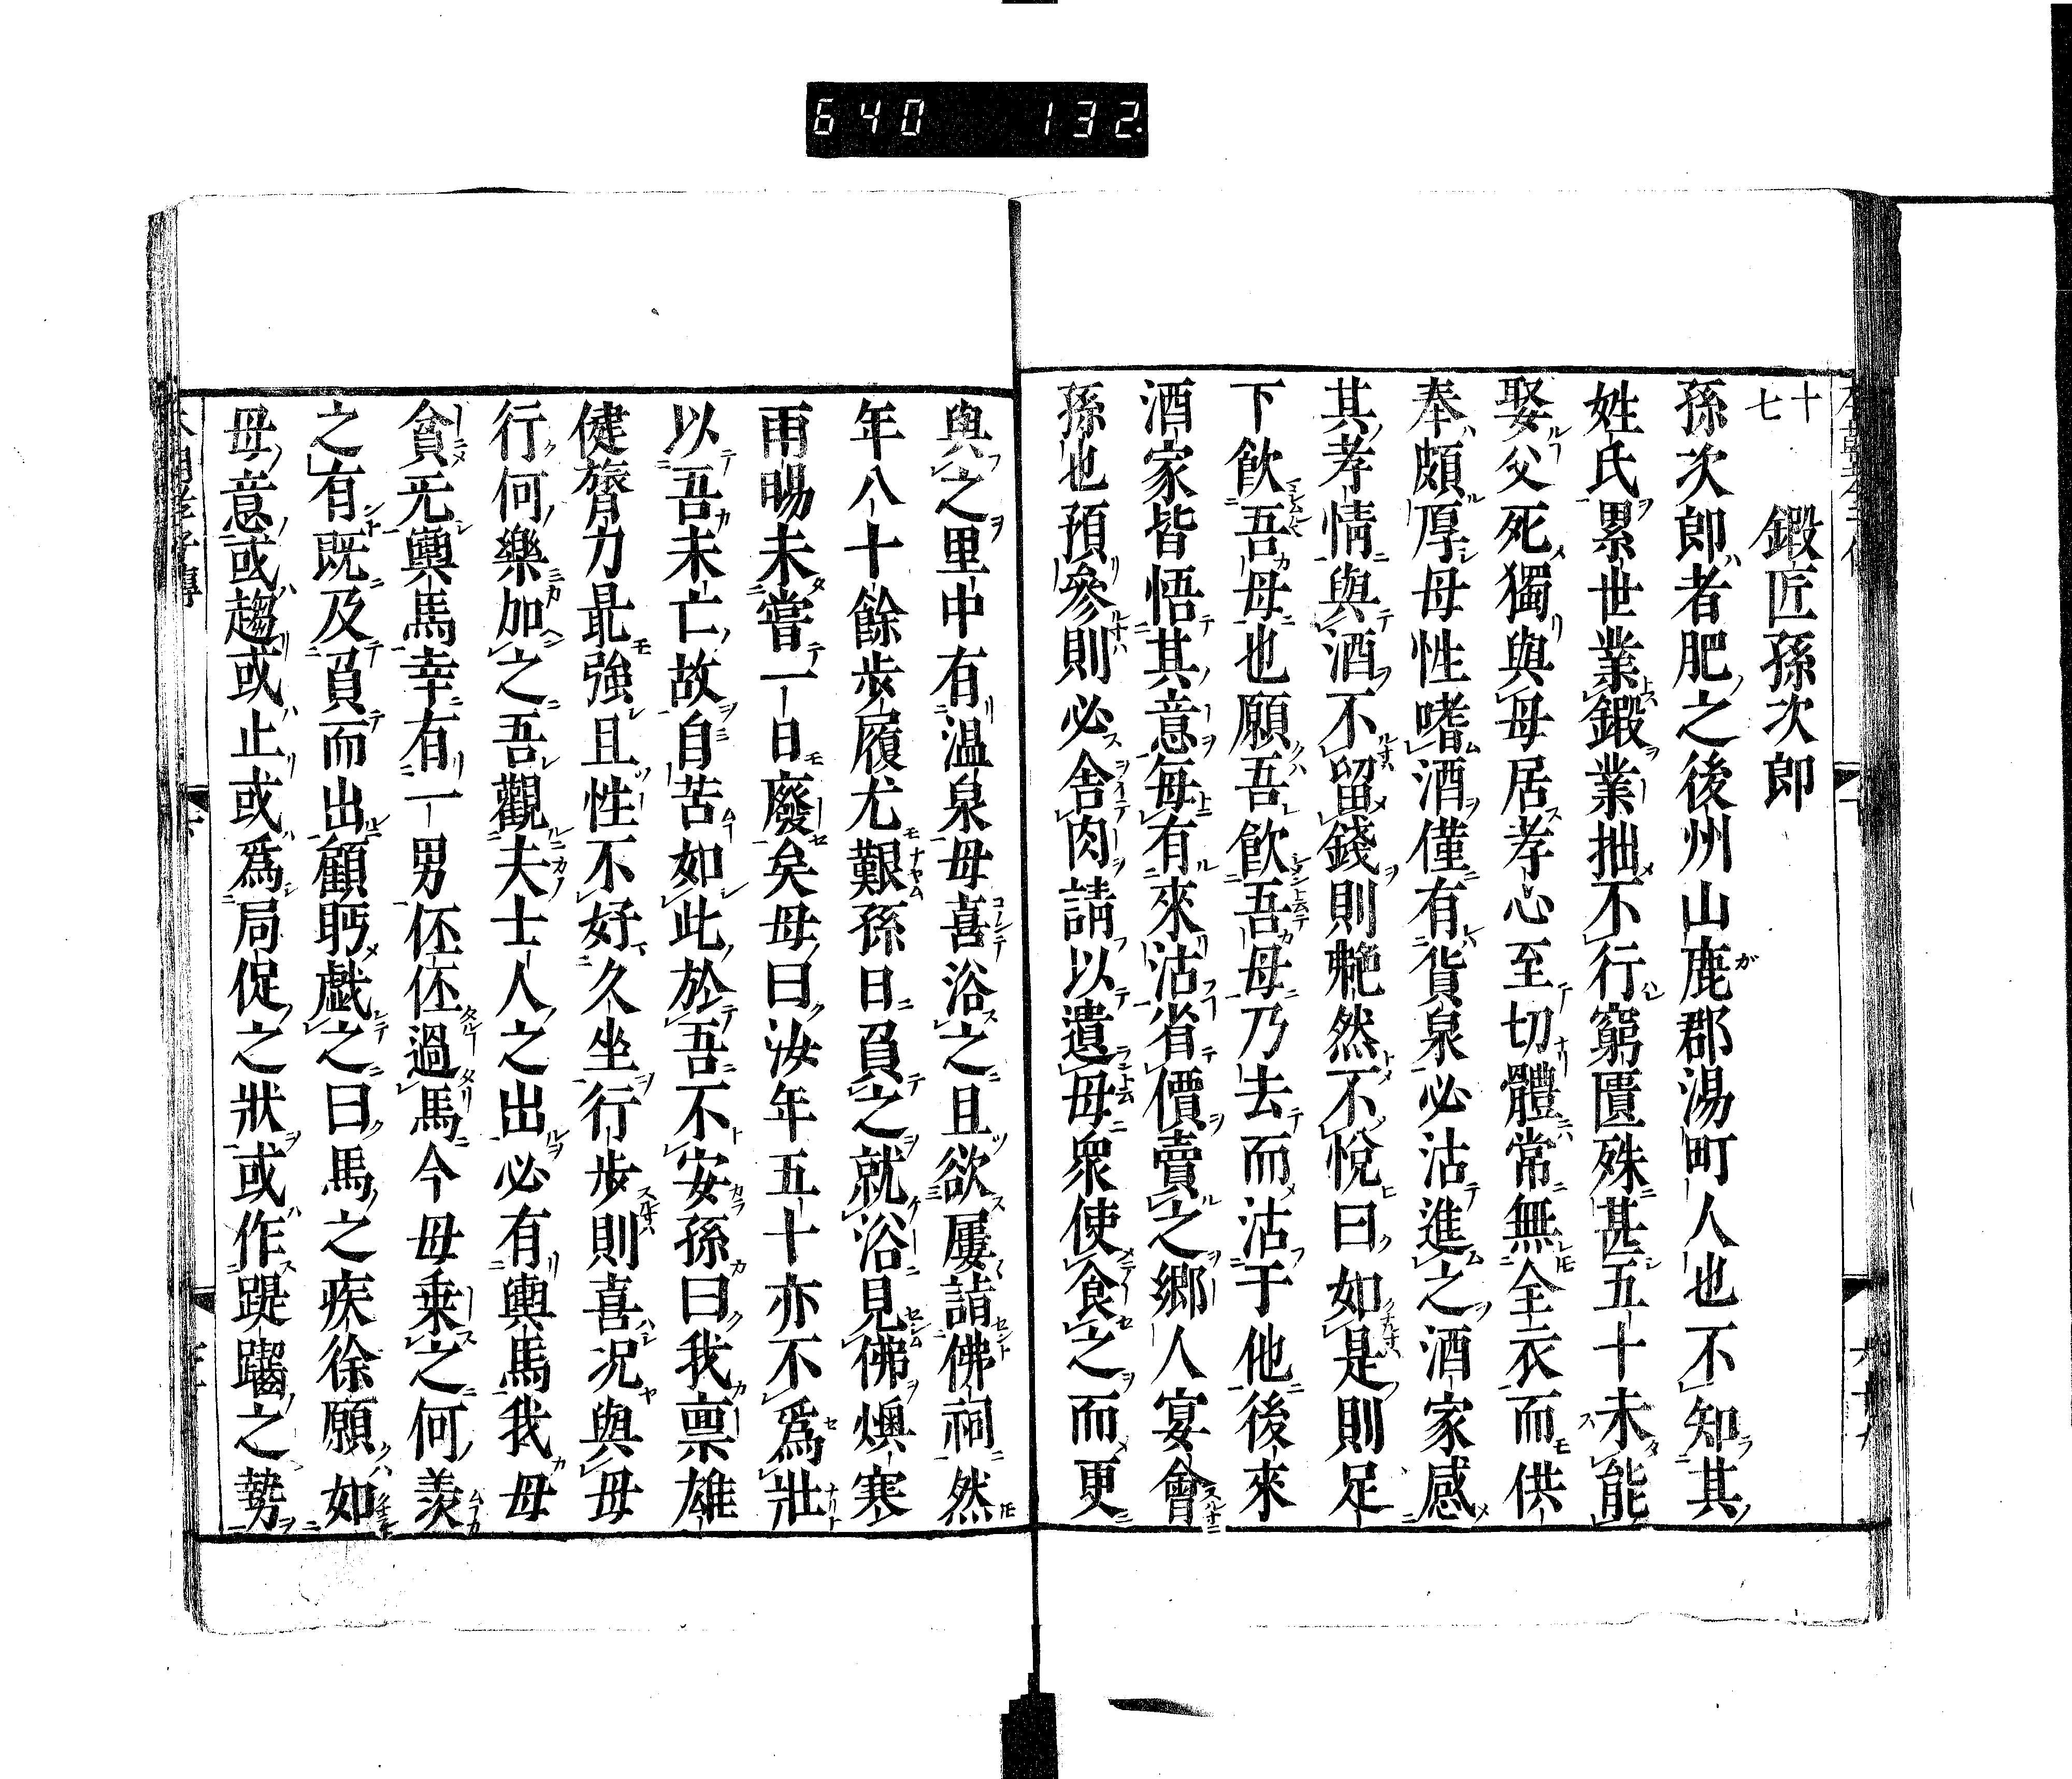 640 132.
十七 鍛匠孫次郎
孫次郎者肥之後州山鹿郡湯町人也不知其
姓氏累世業鍛業拙不行窮匱殊甚五十未能
娶父死獨與母居孝心至切體常無全衣而供
奉頗厚母性嗜酒僅有貨泉必沽進之酒家感
其孝情與酒不留錢則艴然不悅曰如是則足
下飲吾母也願吾飲吾母乃去而沽于他後來
酒家皆悟其意每有來沽省價賣之鄉人宴會
孫也預參則必舍肉請以遺母衆使食之而更
與之里中有溫泉母喜浴之且欲屢詣佛祠然
年八十餘步履尤艱孫日負之就浴見佛燠寒
雨暘未嘗一日廢矣母曰汝年五十亦不爲壯
以吾未亡故自苦如此於吾不安孫曰我稟雄
健膂力最強且性不好久坐行步則喜况與母
行何樂加之吾觀夫士人之出必有輿馬我母
貧无輿馬幸有一男伾伾過馬今母乗之何羨
之有既及負而出顧眄戲之曰馬之疾徐願如
母意或趨或止或爲局促之狀或作踶躢之勢